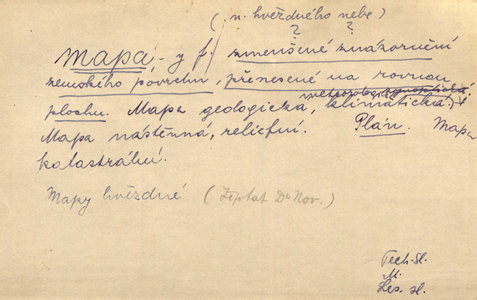 (n. hvězdného nebe)
? ?
mapa, -y f. zmenšené znázornění
zemského povrchu, přenesené na rovnou
plochu. Mapa geologická, klimatická.
Mapa nástěnná, reliefní. Plán. Mapa
katastrální.
Mapy hvězdné (
Tech. sl.
M.
Les. sl.